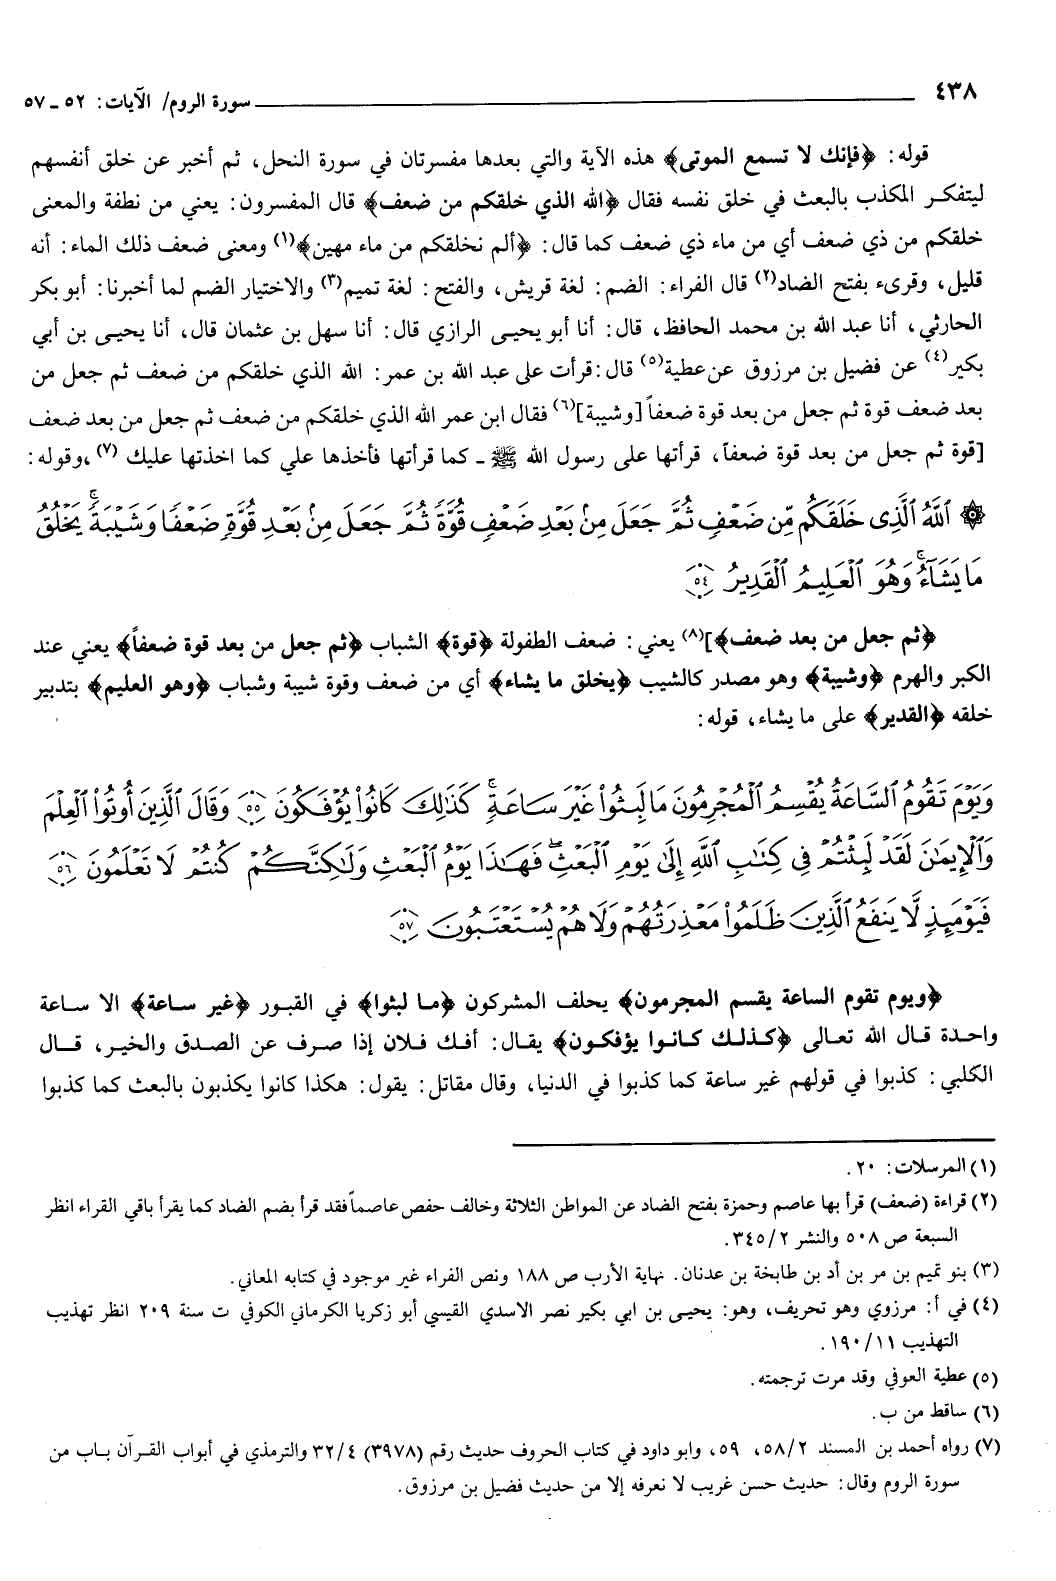 ٤٣٨ سورة الروم/ الآيات: ٥٢ ـ ٥٧
قوله: ﴿فإنك لا تسمع الموتى﴾ هذه الآية والتي بعدها مفسرتان في سورة النحل، ثم أخبر عن خلق أنفسهم
ليتفكر المكذب بالبعث في خلق نفسه فقال ﴿الله الذي خلقكم من ضعف﴾ قال المفسرون: يعني من نطفة والمعنى
خلقكم من ذي ضعف أي من ماء ذي ضعف كما قال: ﴿ألم نخلقكم من ماء مهين﴾(١) ومعنى ضعف ذلك الماء: أنه
قليل، وقرىء بفتح الضاد(٢) قال الفراء: الضم: لغة قريش، والفتح: لغة تميم(٣) والاختيار الضم لما أخبرنا: أبو بكر
الحارثي، أنا عبد الله بن محمد الحافظ، قال: أنا أبو يحيى الرازي قال: أنا سهل بن عثمان قال، أنا يحيى بن أبي
بكير(٤) عن فضيل بن مرزوق عن عطية(٥) قال: قرأت على عبد الله بن عمر: الله الذي خلقكم من ضعف ثم جعل من
بعد ضعف قوة ثم جعل من بعد قوة ضعفاً [وشيبة](٦) فقال ابن عمر الله الذي خلقكم من ضعف ثم جعل من بعد ضعف
[قوة ثم جعل من بعد قوة ضعفاً، قرأتها على رسول الله ﷺ ـ كما قرأتها فأخذها علي كما اخذتها عليك (٧)، وقوله:
۞ ٱللَّهُ ٱلَّذِى خَلَقَكُم مِّن ضَعْفٍ ثُمَّ جَعَلَ مِنۢ بَعْدِ ضَعْفٍ قُوَّةً ثُمَّ جَعَلَ مِنۢ بَعْدِ قُوَّةٍ ضَعْفًا وَشَيْبَةً ۚ يَخْلُقُ
مَا يَشَآءُ ۚ وَهُوَ ٱلْعَلِيمُ ٱلْقَدِيرُ ٥٤
﴿ثم جعل من بعد ضعف﴾](٨) يعني: ضعف الطفولة ﴿قوة﴾ الشباب ﴿ثم جعل من بعد قوة ضعفاً﴾ يعني عند
الكبر والهرم ﴿وشيبة﴾ وهو مصدر كالشيب ﴿يخلق ما يشاء﴾ أي من ضعف وقوة شيبة وشباب ﴿وهو العليم﴾ بتدبير
خلقه ﴿القدير﴾ على ما يشاء، قوله:
وَيَوْمَ تَقُومُ ٱلسَّاعَةُ يُقْسِمُ ٱلْمُجْرِمُونَ مَا لَبِثُوا۟ غَيْرَ سَاعَةٍ ۚ كَذَٰلِكَ كَانُوا۟ يُؤْفَكُونَ ٥٥ وَقَالَ ٱلَّذِينَ أُوتُوا۟ ٱلْعِلْمَ
وَٱلْإِيمَٰنَ لَقَدْ لَبِثْتُمْ فِى كِتَٰبِ ٱللَّهِ إِلَىٰ يَوْمِ ٱلْبَعْثِ ۖ فَهَٰذَا يَوْمُ ٱلْبَعْثِ وَلَٰكِنَّكُمْ كُنتُمْ لَا تَعْلَمُونَ ٥٦
فَيَوْمَئِذٍ لَّا يَنفَعُ ٱلَّذِينَ ظَلَمُوا۟ مَعْذِرَتُهُمْ وَلَا هُمْ يُسْتَعْتَبُونَ ٥٧
﴿ويوم تقوم الساعة يقسم المجرمون﴾ يحلف المشركون ﴿ما لبثوا﴾ في القبور ﴿غير ساعة﴾ الا ساعة
واحدة قال الله تعالى ﴿كذلك كانوا يؤفكون﴾ يقال: أفك فلان إذا صرف عن الصدق والخير، قال
الكلبي: كذبوا في قولهم غير ساعة كما كذبوا في الدنيا، وقال مقاتل: يقول: هكذا كانوا يكذبون بالبعث كما كذبوا
(١) المرسلات: ٢٠.
(٢) قراءة (ضعف) قرأ بها عاصم وحمزة بفتح الضاد عن المواطن الثلاثة وخالف حفص عاصماً فقد قرأ بضم الضاد كما يقرأ باقي القراء انظر
السبعة ص ٥٠٨ والنشر ٣٤٥/٢.
(٣) بنو تميم بن مر بن أد بن طابخة بن عدنان. نهاية الأرب ص ١٨٨ ونص الفراء غير موجود في كتابه المعاني.
(٤) في أ: مرزوي وهو تحريف، وهو: يحيى بن ابي بكير نصر الاسدي القيسي أبو زكريا الكرماني الكوفي ت سنة ٢٠٩ انظر تهذيب
التهذيب ١٩٠/١١.
(٥) عطية العوفي وقد مرت ترجمته.
(٦) ساقط من ب.
(٧) رواه أحمد بن المسند ٥٨/٢، ٥٩، وابو داود في كتاب الحروف حديث رقم (٣٩٧٨) ٣٢/٤ والترمذي في أبواب القرآن باب من
سورة الروم وقال: حديث حسن غريب لا نعرفه إلا من حديث فضيل بن مرزوق.